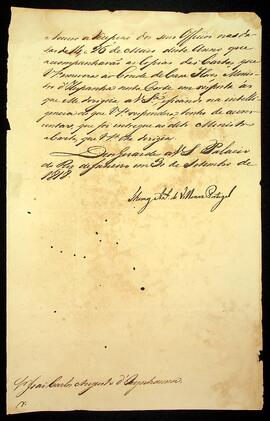 Officio na da-
ta de 26 de Maio deste Anno que
acompanharão as Copias das Cartas que
V. escreveo ao Conde de Casa Flores Minis-
tro d'Hespanha nesta Corte em resposta ás
que elle dirigio a V. S.ª ficando na intelli-
gencia do que V. S.ª respondeo, tenho de accres-
centar, que foi entregue ao dito Ministro
a Carta, que V. S.ª lhe dirigia.
Deos guarde a V. S. Palacio
do Rio de Janeiro em de Setembro de
1818.
Thomaz Ant.º de Villanova Portugal
S.r João Carlos Augusto d'Oyenhausen